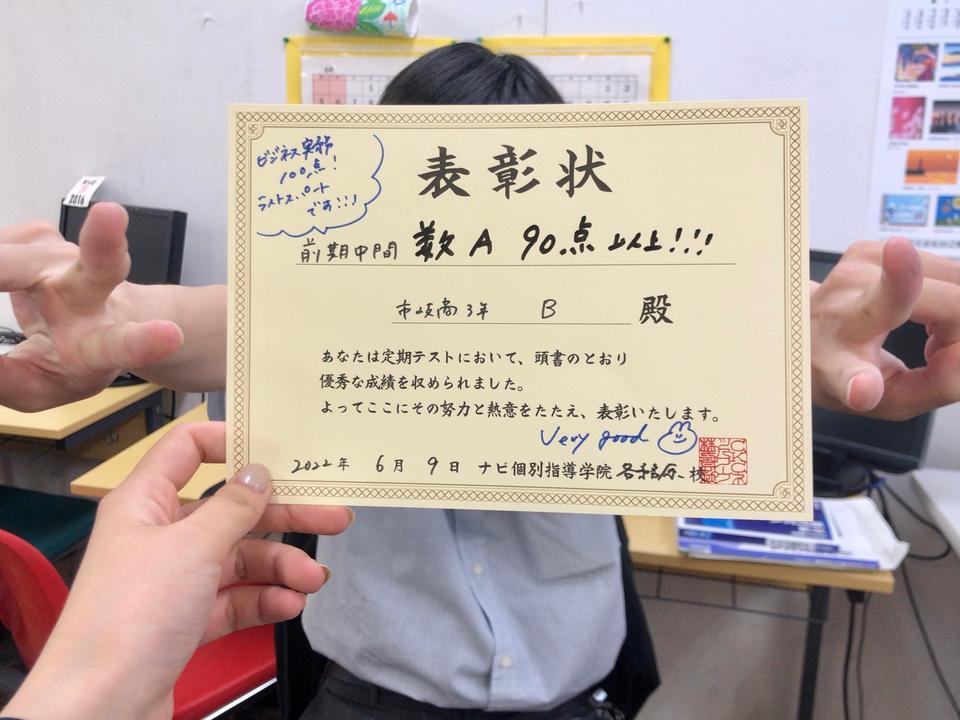 ビジネス実務
100点!
ラストスパート
です!!!
表彰状
前期中間 数A 90点以上!!!
市岐商3年 B 殿
あなたは定期テストにおいて、頭書のとおり
優秀な成績を収められました。
よってここにその努力と熱意をたたえ、表彰いたします。
Very good
2022年 6月 9日 ナビ個別指導学院 各務原校
6月
2016